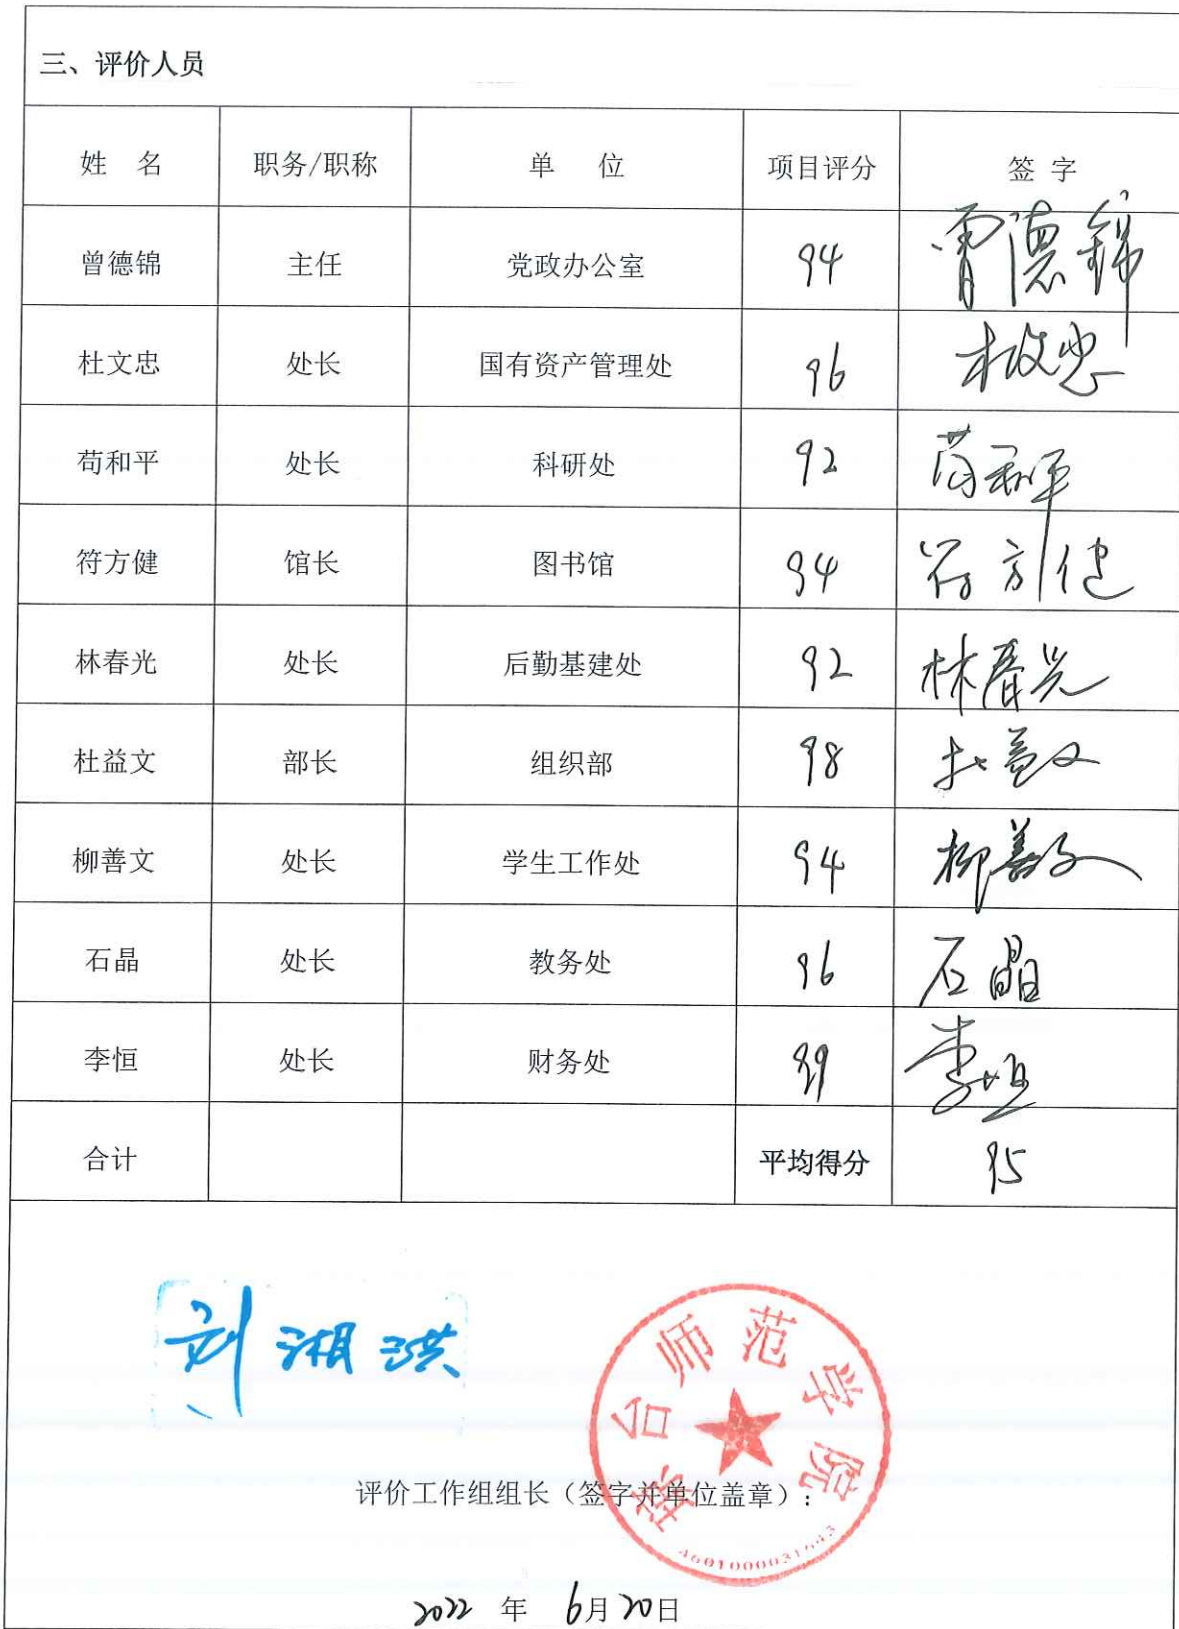 三、评价人员
姓 名 职务/职称 单 位 项目评分 签 字
曾德锦 主任 党政办公室 94 曾德锦
杜文忠 处长 国有资产管理处 96 杜文忠
苟和平 处长 科研处 92 苟和平
符方健 馆长 图书馆 94 符方健
林春光 处长 后勤基建处 92 林春光
杜益文 部长 组织部 98 杜益文
柳善文 处长 学生工作处 94 柳善文
石晶 处长 教务处 96 石晶
李恒 处长 财务处 99 李恒
合计 平均得分 95
刘湘洪
琼台师范学院
评价工作组组长（签字并单位盖章）：
2022 年 6月20日